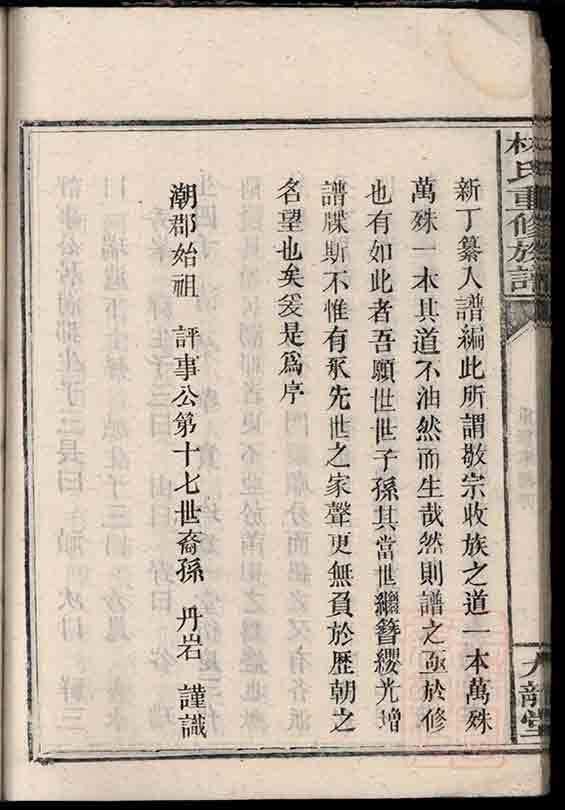 林氏重修族譜
九龍堂
新丁纂入譜編此所謂敬宗收族之道一本萬殊
萬殊一本其道不油然而生哉然則譜之亟於修
也有如此者吾願世世子孫其當世繼簪纓光增
譜牒斯不惟有永先世之家聲更無負於歷朝之
名望也矣爰是為序
潮郡始祖 評事公第十七世裔孫 丹岩 謹識